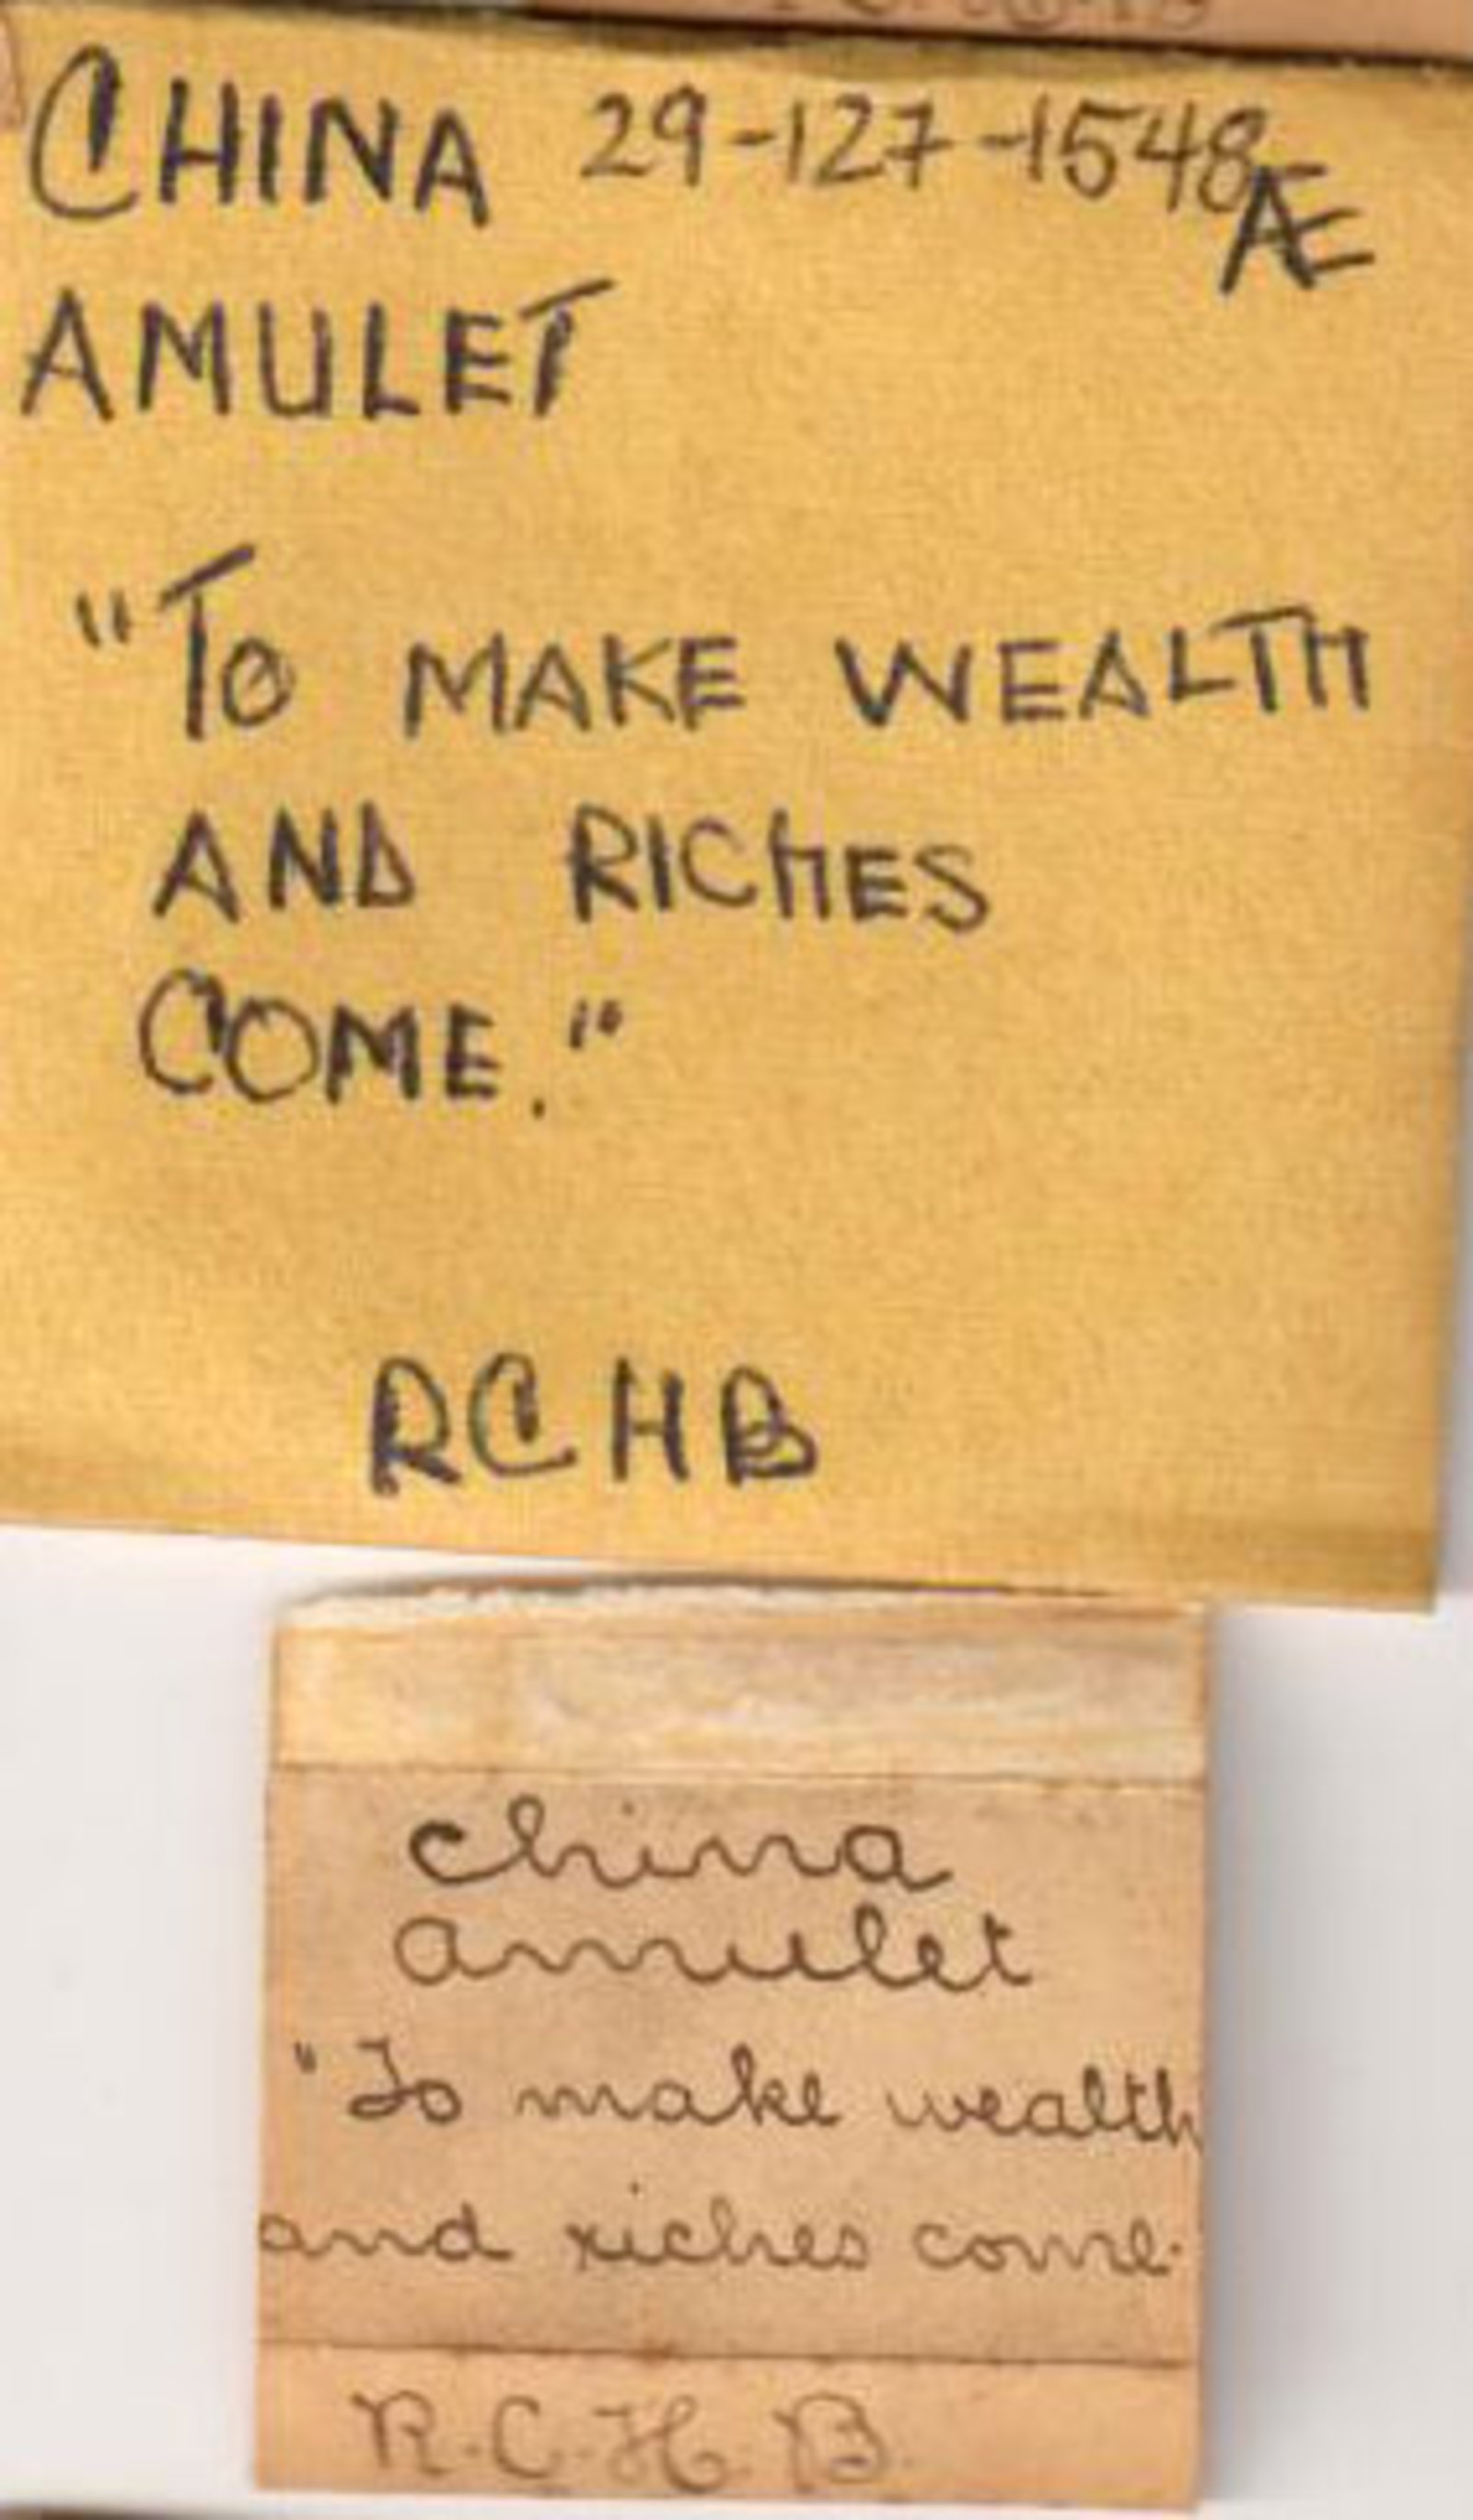 CHINA 29-127-1548
Æ
AMULET
"TO MAKE WEALTH
AND RICHES
COME."
RCHB
China
amulet
"To make wealth
and riches come.
R.C.H.B.